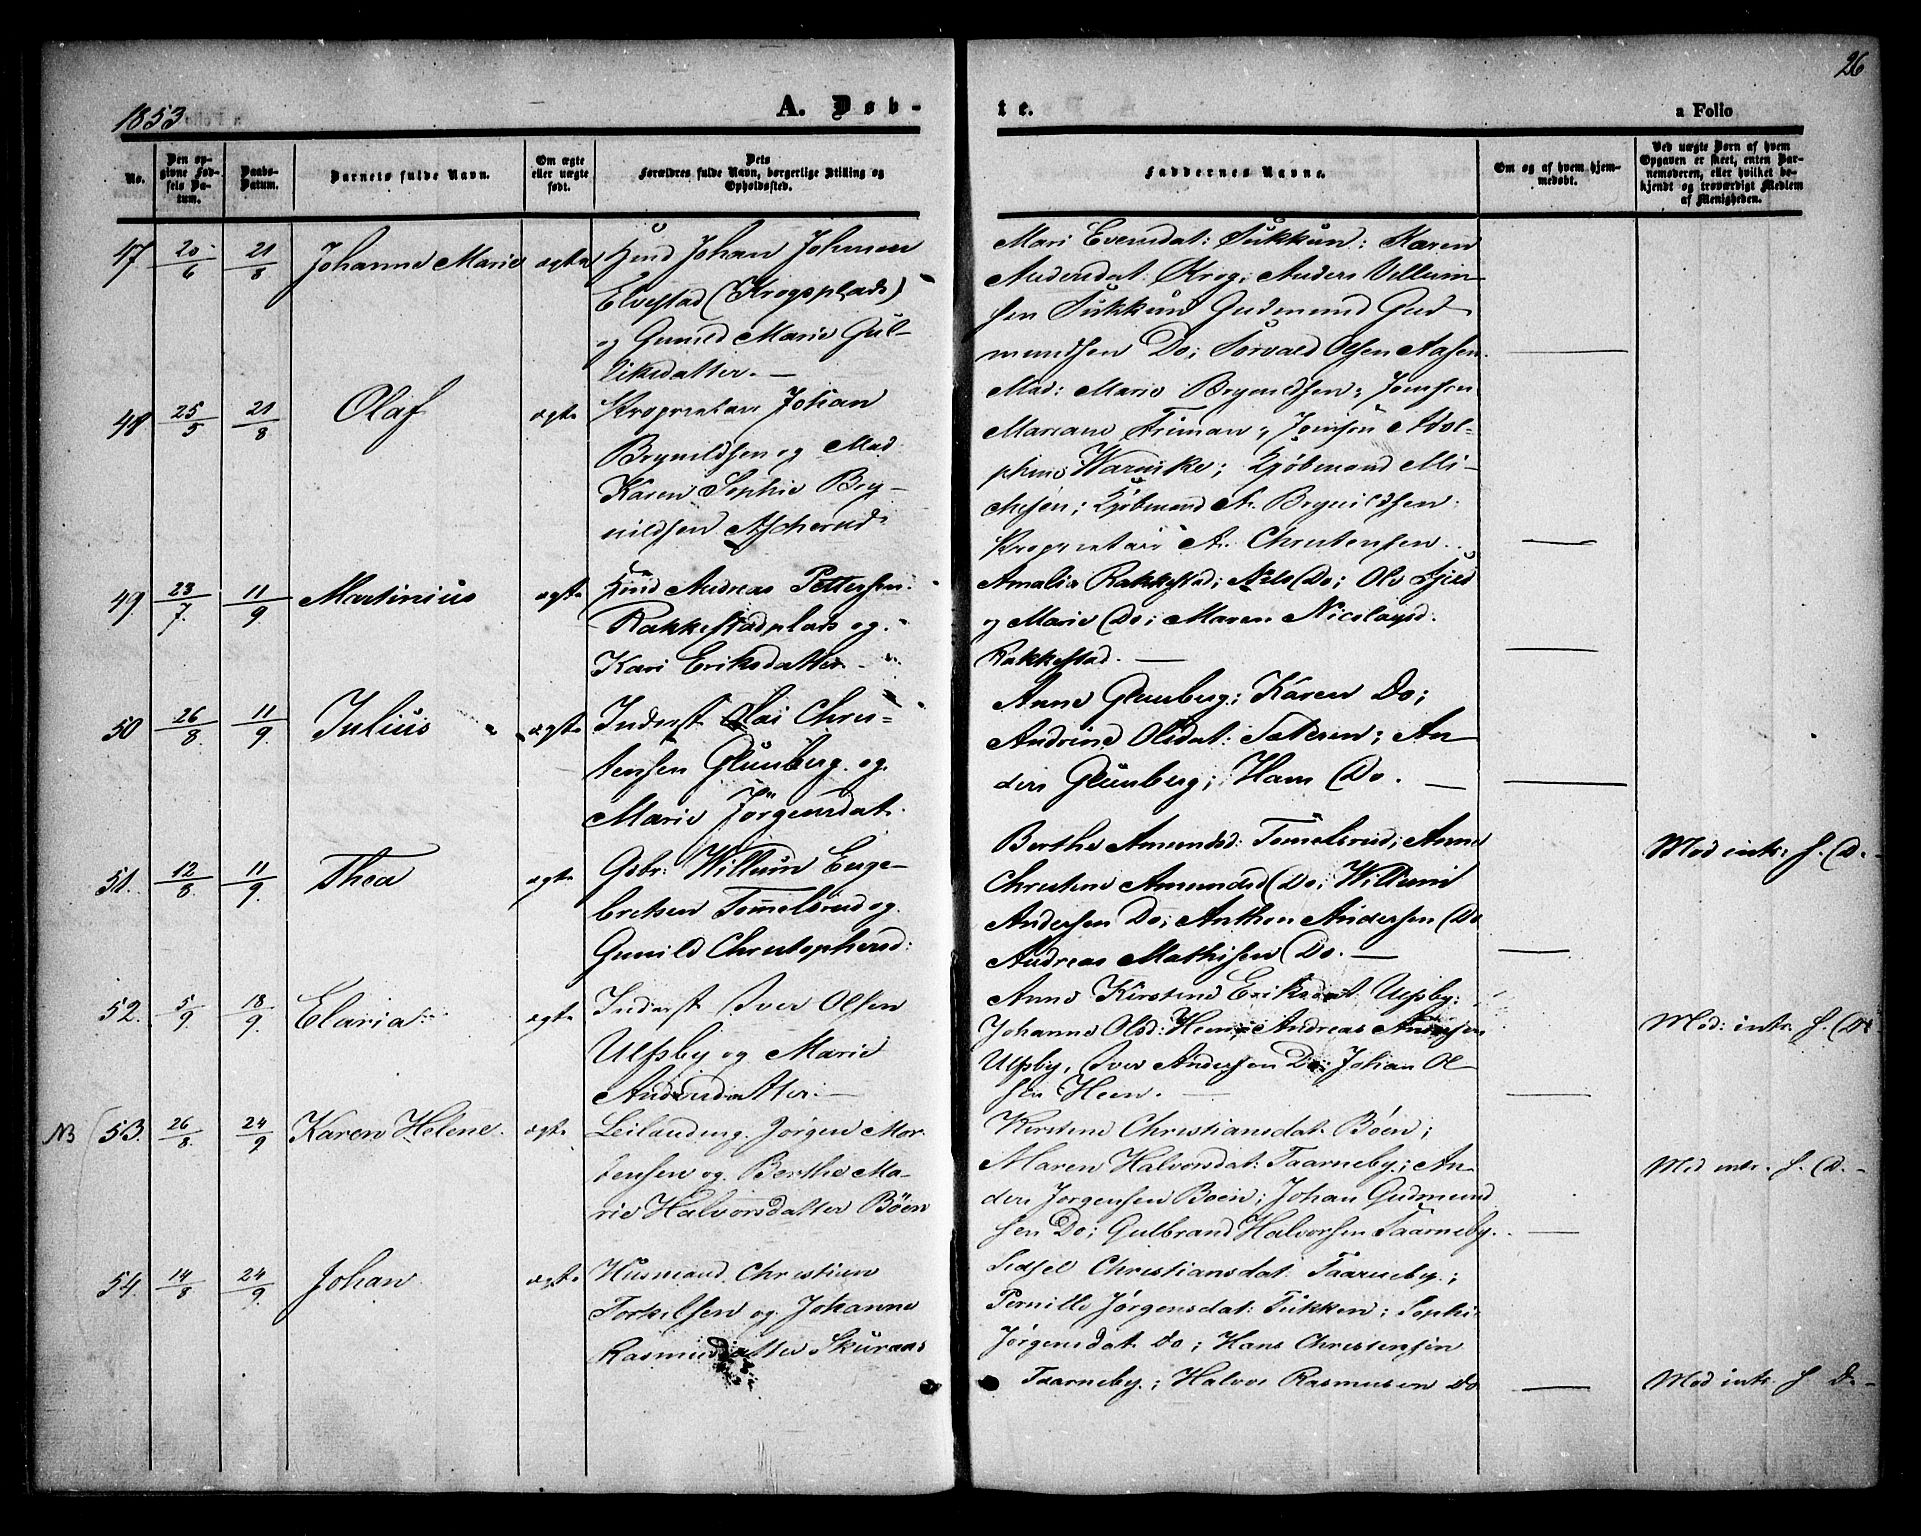 26
1853
A. Døb-
te.
a Folio
No.
Den op-
givne Fød-
sels Da-
tum.
Daabs-
Datum.
Barnets fulde Navn.
Om ægte
eller uægte
født.
Dets
Forældres fulde Navn, borgerlige Stilling og
Opholdssted.
Faddernes Navne.
Om og af hvem hjem-
medøbt.
Ved uægte Børn af hvem
Opgaven er skeet, enten Bar-
nemoderen, eller hvilket be-
kjendt og troværdigt Medlem
af Menigheden.
47 20/6 21/8 Johanne Marie ægte
Johan Johnsen
Elvestad (Krogsplads)
og Gunild Marie Gul-
liksdatter. —
Mari Evensdat: Karen
Andersdat: Krog; Anders Villum
sen Gudmund Gud
mundsen Do; Torvald Olsen Aasen.
48 25/5 21/8 Olaf ægte
Proprietær Johan
Brynildsen og Mad
Karen Sophie Bry-
nildsen
Mad: Marie Brynildsen; Jomfru
Mariane Jomfru Adol-
phine Warnike; Kjøbmand Mi-
Kjøbmand A. Brynildsen:
Proprietær A. Christensen.
49. 23/7. 11/9 Martinius ægte
Andreas Pettersen.
Rakkestadplads og
Kari Eriksdatter. —
Amalia Rakkestad; Nils (Do; Ole
og Marie (Do; Maren Nicolaysd:
Rakkestad. —
50 26/8. 11/9. Julius ægte
Inderst Olai Chris-
tensen Glunberg. og
Marie Jörgensdat.
Anne Glunberg; Karen Do;
Andrine Olsdat: An
ders Glunberg; Hans (Do. —
51. 12/8. 11/9. Thea ægte
Gbr: Willum Enge-
bretsen Tommelsrud og
Gunild Christophersd:
Berthe Amundsd: Tommelsrud; Anne
Christine Amundsd (Do; Willum
Andersen Do; Anthon Andersen (Do
Andreas Mathisen (Do. —
Mod intr: f. (D. -
52. 5/9 18/9. Elaria ægte
Inderst Iver Olsen
Ulfsby og Marie
Andersdatter. —
Anne Kirstine Eriksdat. Ulfsby;
Johanne Olsd: Heen; Andreas Andersen
Ulfsby, Iver Andersen Do; Johan Ol-
sen Heen. —
Mod: intr. f. (D.
NB (53. 26/8. 24/9 Karen Helene. ægte
Leilænding. Jörgen Mor
tensen og Berthe Ma-
rie Halvorsdatter Böen
Kirstine Christiansdat. Böen;
Maren Halvorsdat: Taarneby; An
ders Jorgensen Boen; Johan Gudmund
sen Do; Gulbrand Halvorsen Taarneby.
Mod intr. f. (D. -
54. 14/8 24/9. Johan ægte
Husmand. Christian
Torkelsen og Johanne
Rasmusdatter Skuraas
Sidsel Christiansdat: Taarneby;
Pernille Jörgensdat: Tukken; Sophi
Jörgensdat Do; Hans Christensen
Taarneby; Halvor Rasmusen Do
Mod intr f D. -